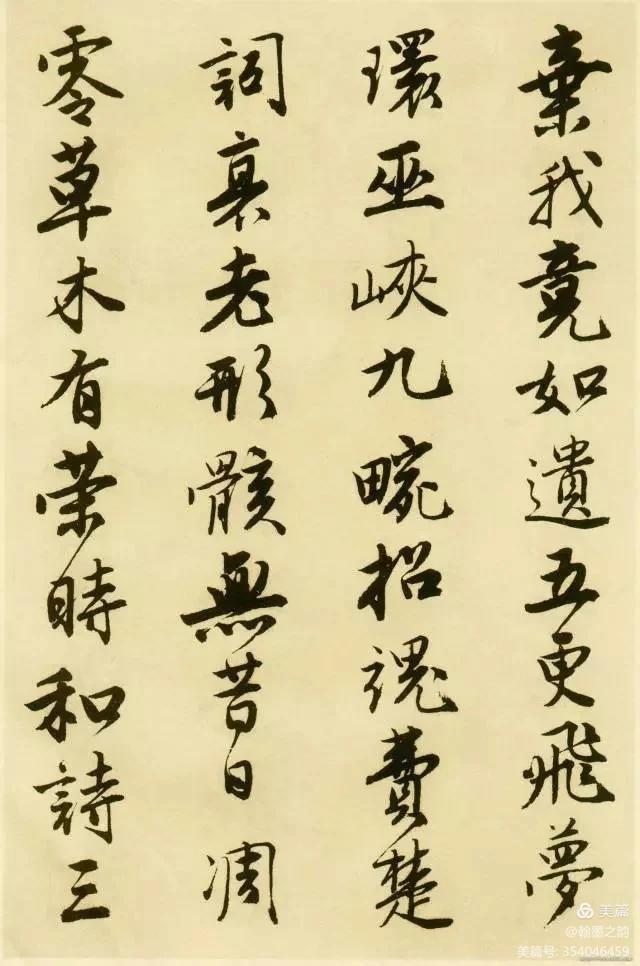 棄我竟如遺五更飛夢
環巫峽九畹招魂費楚
詞衰老形骸無昔日凋
零草木有榮時和詩三
美篇
@翰墨之韵
美篇号: 354046459